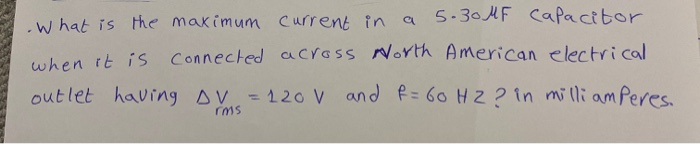 .What is the maximum current in a 5.30 μF capacitor
when it is connected across North American electrical
outlet having ΔV_rms = 120 V and f = 60 HZ ? in milliamperes.